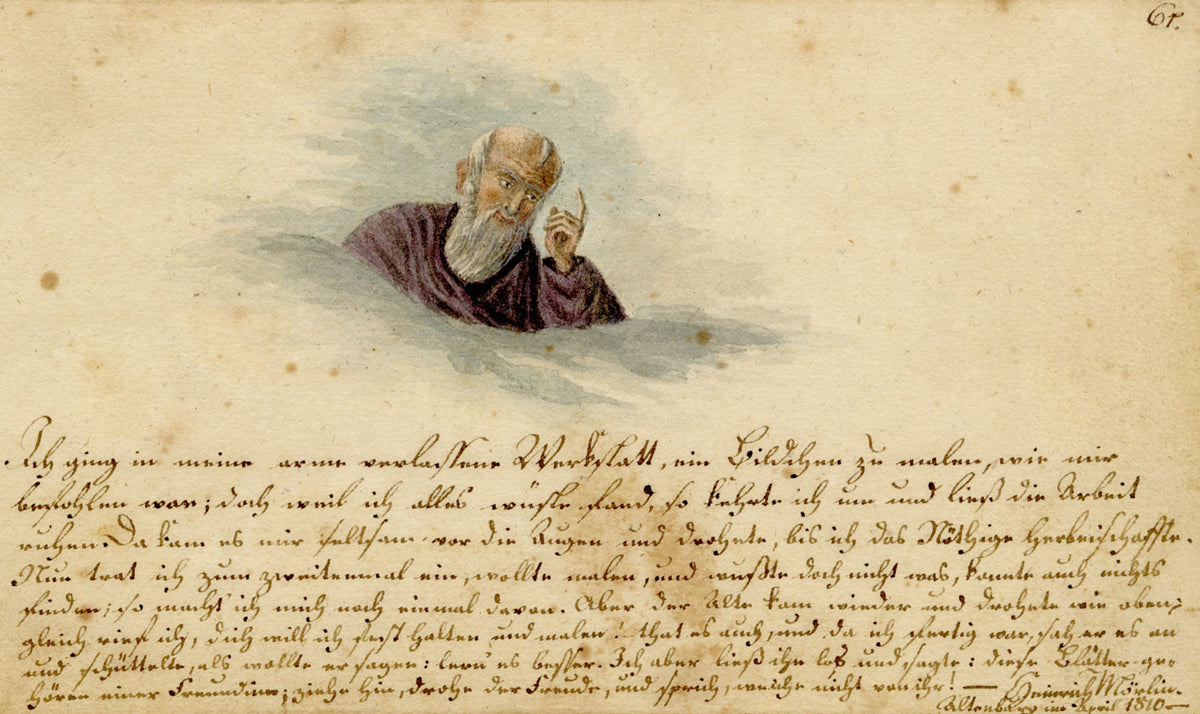 61.
Ich ging in meine arme verlassene Werkstatt, ein Bildchen zu malen, wie mir
befohlen war; doch weil ich alles wüste fand, so kehrte ich um und ließ die Arbeit
ruhen. Da kam es mir seltsam vor die Augen und drohete, bis ich das Nöthige herbeischaffte.
Nun trat ich zum zweitenmal ein, wollte malen, und wußte doch nicht was, konnte auch nichts
finden; so macht' ich mich noch einmal davon. Aber der Alte kam wieder und drohete wie oben;
gleich rief ich, dich will ich fest halten und malen! that es auch, und da ich fertig war, sah er es an
und schüttelte, als wollte er sagen: lern' es besser. Ich aber ließ ihn los und sagte: diese Blätter ge-
hören einer Freundinn; ziehe hin, drohe der Freude, und sprich, weiche nicht von ihr! — Heinrich Mörlin.
Altenburg im April 1810 —